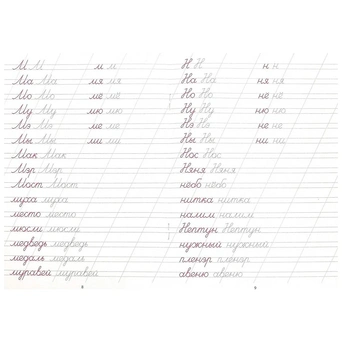 М М м м
Ма Ма мя мя
Мо Мо ме ме
Му Му мю мю
Мэ Мэ ме ме
Мы Мы ми ми
Мак Мак
Мэр Мэр
Мост Мост
муха муха
место место
мюсли мюсли
медведь медведь
медаль медаль
муравей муравей
8
Н Н н н
На На ня ня
Но Но не не
Ну Ну ню ню
Нэ Нэ не не
Ны Ны ни ни
Нос Нос
Няня Няня
небо небо
нитка нитка
налим налим
Нептун Нептун
нужный нужный
пленэр пленэр
авеню авеню
9